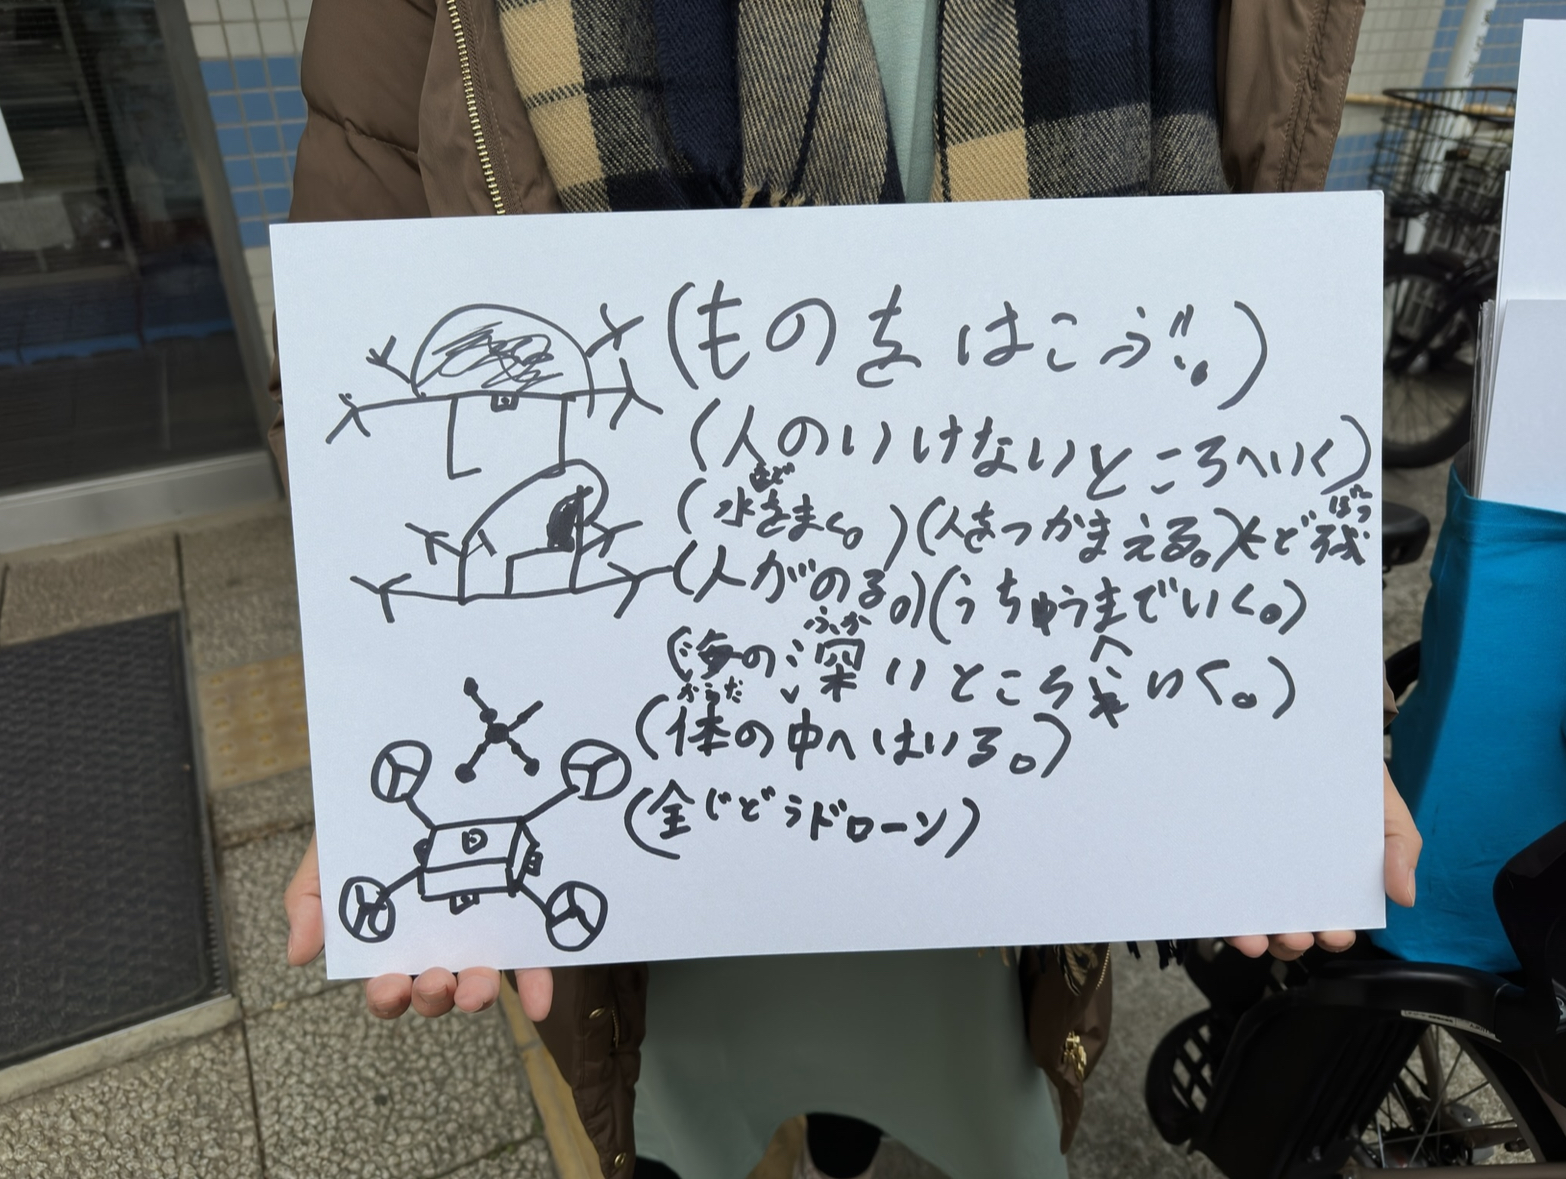 (ものをはこぶ。)
(人のいけないところへいく)
(水などをまく。)(人をつかまえる。)
(人がのる。)(うちゅうまでいく。)
(海の深いところへいく。)
ふか
(体の中へはいる。)
からだ
(全じどうドローン)